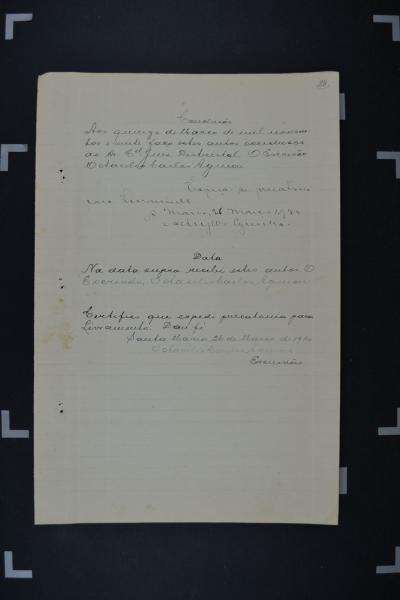 Conclusão
Aos quinze de Março de mil novecen-
tos e vinte faço estes autos conclusos
ao Sr. Cel. Juiz Districtal. O Escrivão
Octacilio Carlos Aguiar
para Livramento
S. Maria, 26 Março 1920
Data
Na data supra recebi estes autos. O
Escrivão, Octacilio Carlos Aguiar
Certifico que expedi precatoria para
Livramento. Dou fé.
Santa Maria, 26 de Março de 1920
Escrivão